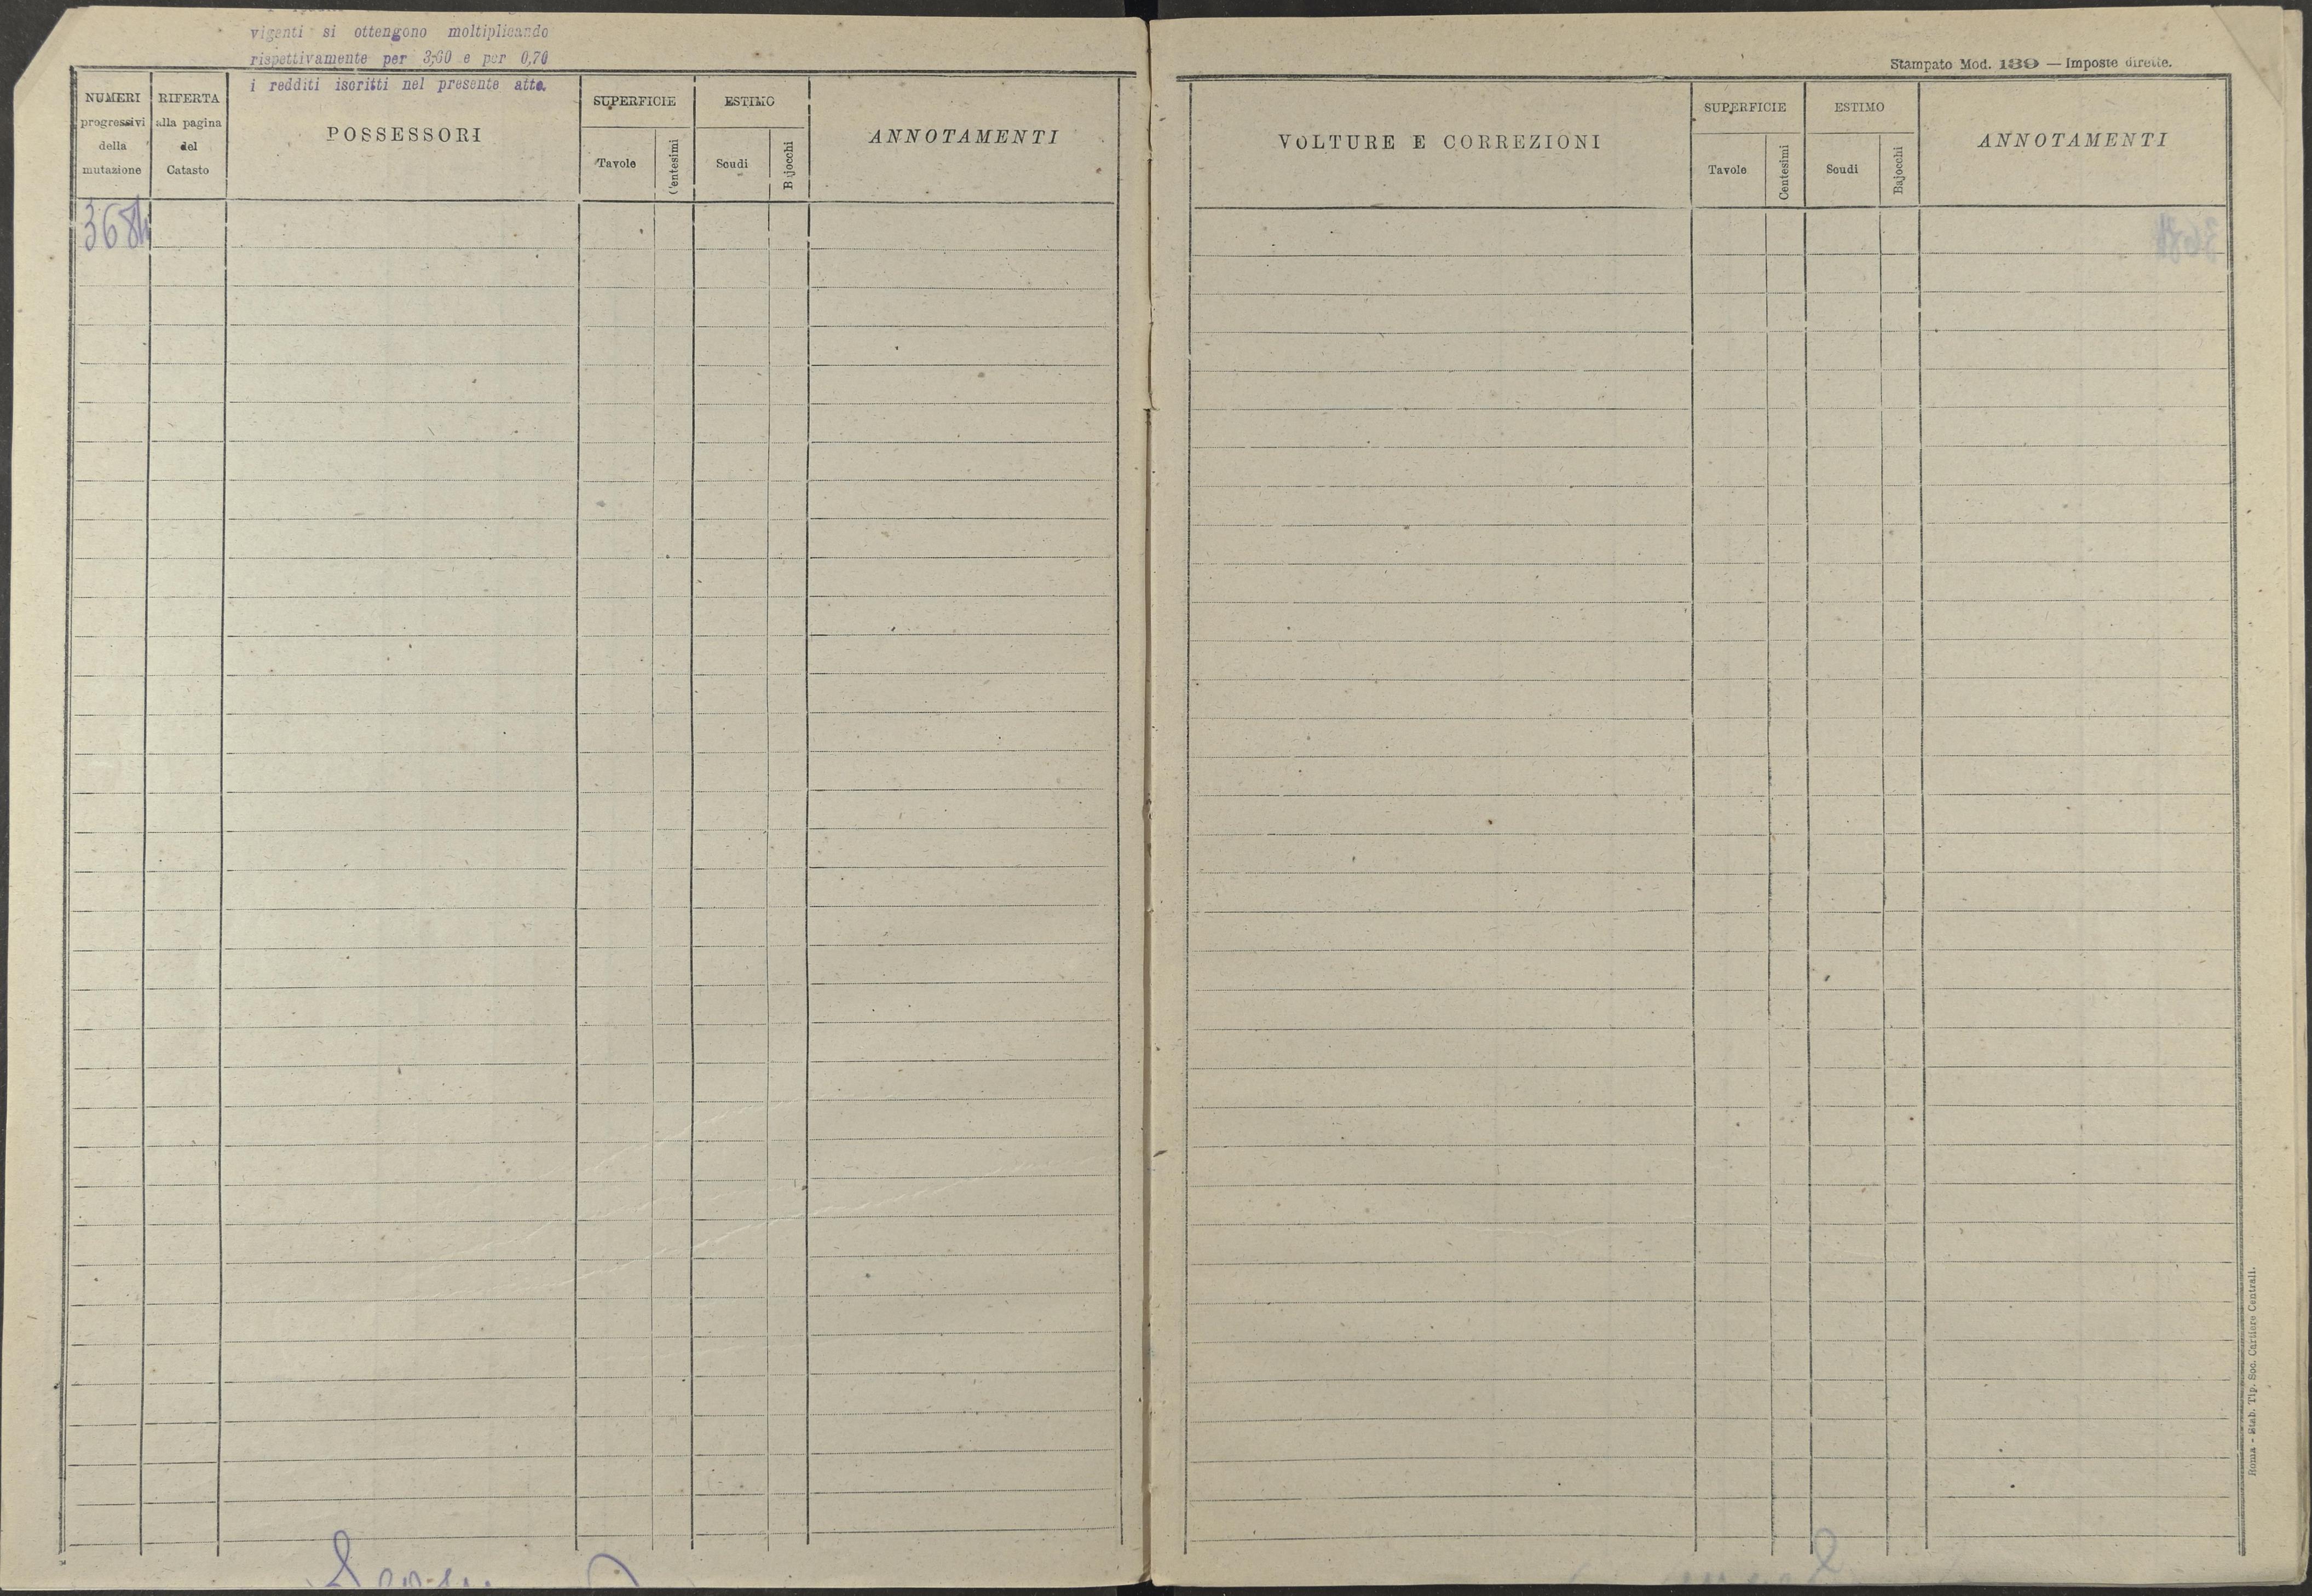 vigenti si ottengono moltiplicando
rispettivamente per 3,60 e per 0,70
i redditi iscritti nel presente atto.
NUMERI
progressivi
della
mutazione
RIFERTA
alla pagina
del
Catasto
POSSESSORI
SUPERFICIE
Tavole
Centesimi
ESTIMO
Scudi
Bajocchi
ANNOTAMENTI
3684
Stampato Mod. 139 — Imposte dirette.
VOLTURE E CORREZIONI
SUPERFICIE
Tavole
Centesimi
ESTIMO
Scudi
Bajocchi
ANNOTAMENTI
Roma - Stab. Tip. Soc. Cartiere Centrali.